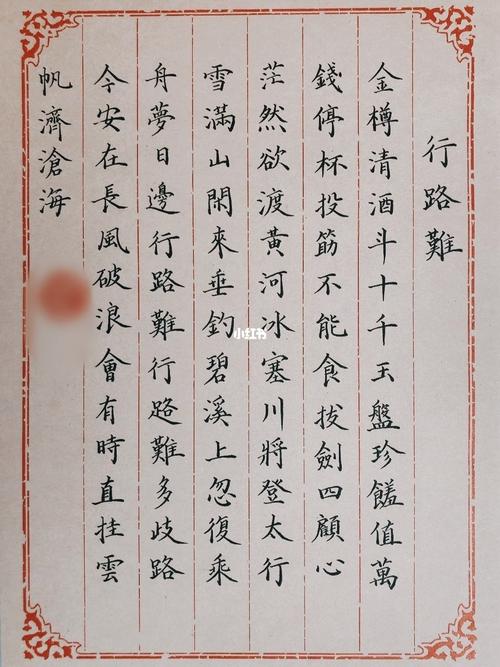 行路難
金樽清酒斗十千玉盤珍饈值萬
錢停杯投筯不能食拔劍四顧心
茫然欲渡黃河冰塞川將登太行
雪滿山閑來垂釣碧溪上忽復乘
舟夢日邊行路難行路難多歧路
今安在長風破浪會有時直挂雲
帆濟滄海
小红书